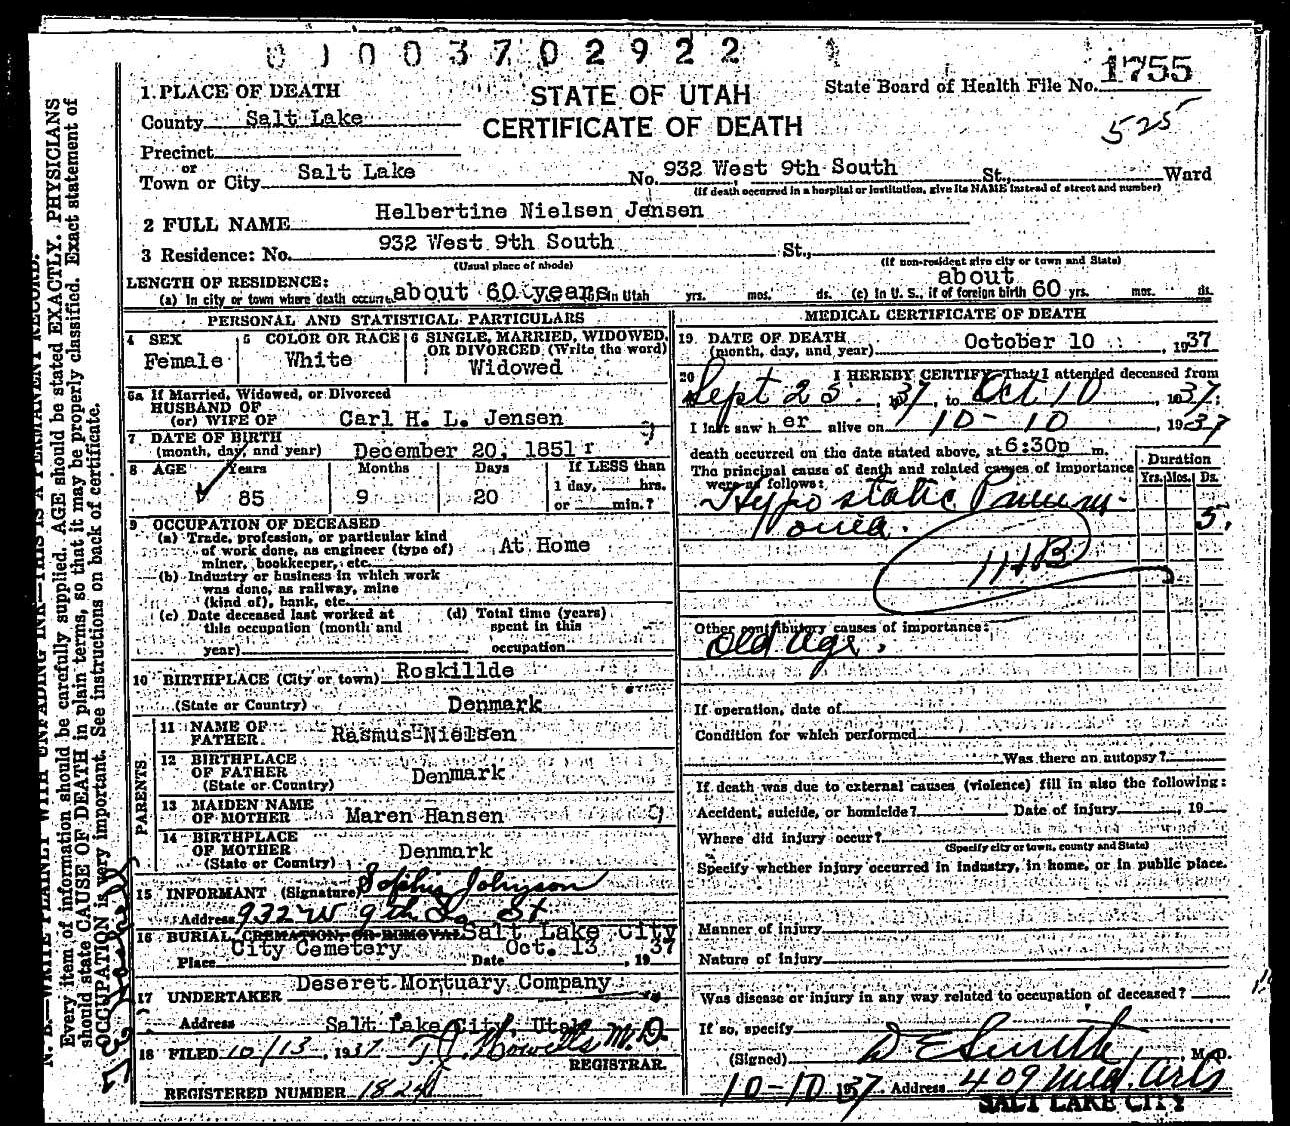 01003702922
1. PLACE OF DEATH
STATE OF UTAH
CERTIFICATE OF DEATH
State Board of Health File No. 1755
525
County Salt Lake
Precinct
or
Town or City Salt Lake No. 932 West 9th South St., Ward
(If death occurred in a hospital or institution, give its NAME instead of street and number)
2 FULL NAME Helbertine Nielsen Jensen
3 Residence: No. 932 West 9th South St.,
(Usual place of abode) (If non-resident give city or town and State)
LENGTH OF RESIDENCE:
(a) In city or town where death occurred about 60 years In Utah yrs. mos. ds. (c) In U.S., if of foreign birth about 60 yrs. mos. ds.
PERSONAL AND STATISTICAL PARTICULARS
4 SEX Female
5 COLOR OR RACE White
6 SINGLE, MARRIED, WIDOWED, OR DIVORCED (Write the word) Widowed
6a If Married, Widowed, or Divorced
HUSBAND OF
(or) WIFE OF Carl H. L. Jensen
7 DATE OF BIRTH
(month, day, and year) December 20, 1851
8 AGE Years 85 Months 9 Days 20 If LESS than
1 day, hrs.
or min.?
9 OCCUPATION OF DECEASED
(a) Trade, profession, or particular kind
of work done, as engineer (type of)
miner, bookkeeper, etc. At Home
(b) Industry or business in which work
was done, as railway, mine
(kind of), bank, etc.
(c) Date deceased last worked at
this occupation (month and
year)
(d) Total time (years)
spent in this
occupation
10 BIRTHPLACE (City or town) Roskillde
(State or Country) Denmark
PARENTS
11 NAME OF
FATHER Rasmus Nielsen
12 BIRTHPLACE
OF FATHER
(State or Country) Denmark
13 MAIDEN NAME
OF MOTHER Maren Hansen
14 BIRTHPLACE
OF MOTHER
(State or Country) Denmark
15 INFORMANT (Signature) Sophie Johnson
Address 932 W 9th So St
16 BURIAL, CREMATION, OR REMOVAL Salt Lake City
Place City Cemetery Date Oct. 13, 1937
17 UNDERTAKER Deseret Mortuary Company
Address Salt Lake City, Utah
18 FILED 10/13, 1937 M.D.
REGISTRAR.
REGISTERED NUMBER 1824
MEDICAL CERTIFICATE OF DEATH
19 DATE OF DEATH
(month, day, and year) October 10, 1937
20 I HEREBY CERTIFY, That I attended deceased from
Sept 25, 1937, to Oct 10, 1937;
I last saw her alive on 10-10, 1937
death occurred on the date stated above, at 6:30p m.
The principal cause of death and related causes of importance
were as follows:
Duration
Yrs. Mos. Ds.
Hypostatic Pneum-
onia. 5.
Other contributory causes of importance:
Old Age.
If operation, date of
Condition for which performed
Was there an autopsy?
If death was due to external causes (violence) fill in also the following:
Accident, suicide, or homicide? Date of injury, 19
Where did injury occur?
(Specify city or town, county and State)
Specify whether injury occurred in industry, in home, or in public place.
Manner of injury
Nature of injury
Was disease or injury in any way related to occupation of deceased?
If so, specify
(Signed) D E Smith, M.D.
10-10 1937 Address 409 Med. Arts
SALT LAKE CITY
N. B.—WRITE PLAINLY WITH UNFADING INK—THIS IS A PERMANENT RECORD.
Every item of information should be carefully supplied. AGE should be stated EXACTLY. PHYSICIANS
should state CAUSE OF DEATH in plain terms, so that it may be properly classified. Exact statement of
OCCUPATION is very important. See instructions on back of certificate.